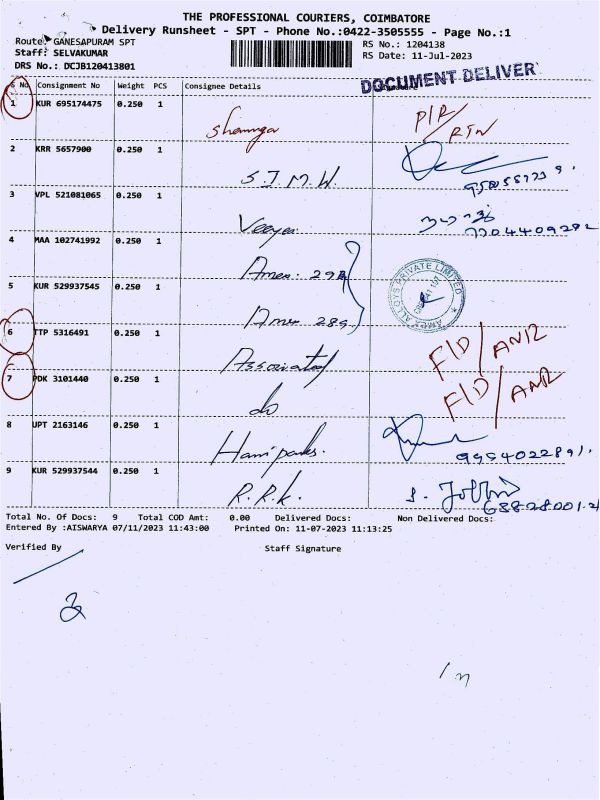 THE PROFESSIONAL COURIERS, COIMBATORE
Delivery Runsheet - SPT - Phone No.:0422-3505555 - Page No.:1
Route: GANESAPURAM SPT
Staff: SELVAKUMAR
DRS No.: DCJB120413801
RS No.: 1204138
RS Date: 11-Jul-2023
DOCUMENT DELIVER
S No. Consignment No Weight PCS Consignee Details
1 KUR 695174475 0.250 1 P/R / RTN
2 KRR 5657900 0.250 1 S.I.M.W.
3 VPL 521081065 0.250 1 7704409282
4 MAA 102741992 0.250 1
5 KUR 529937545 0.250 1
PRIVATE LIMITED
6 TTP 5316491 0.250 1 F/D
7 PDK 3101440 0.250 1 do F/D
8 UPT 2163146 0.250 1
9 KUR 529937544 0.250 1 R.R.k.
Total No. Of Docs: 9 Total COD Amt: 0.00 Delivered Docs: Non Delivered Docs:
Entered By :AISWARYA 07/11/2023 11:43:00 Printed On: 11-07-2023 11:13:25
Verified By Staff Signature